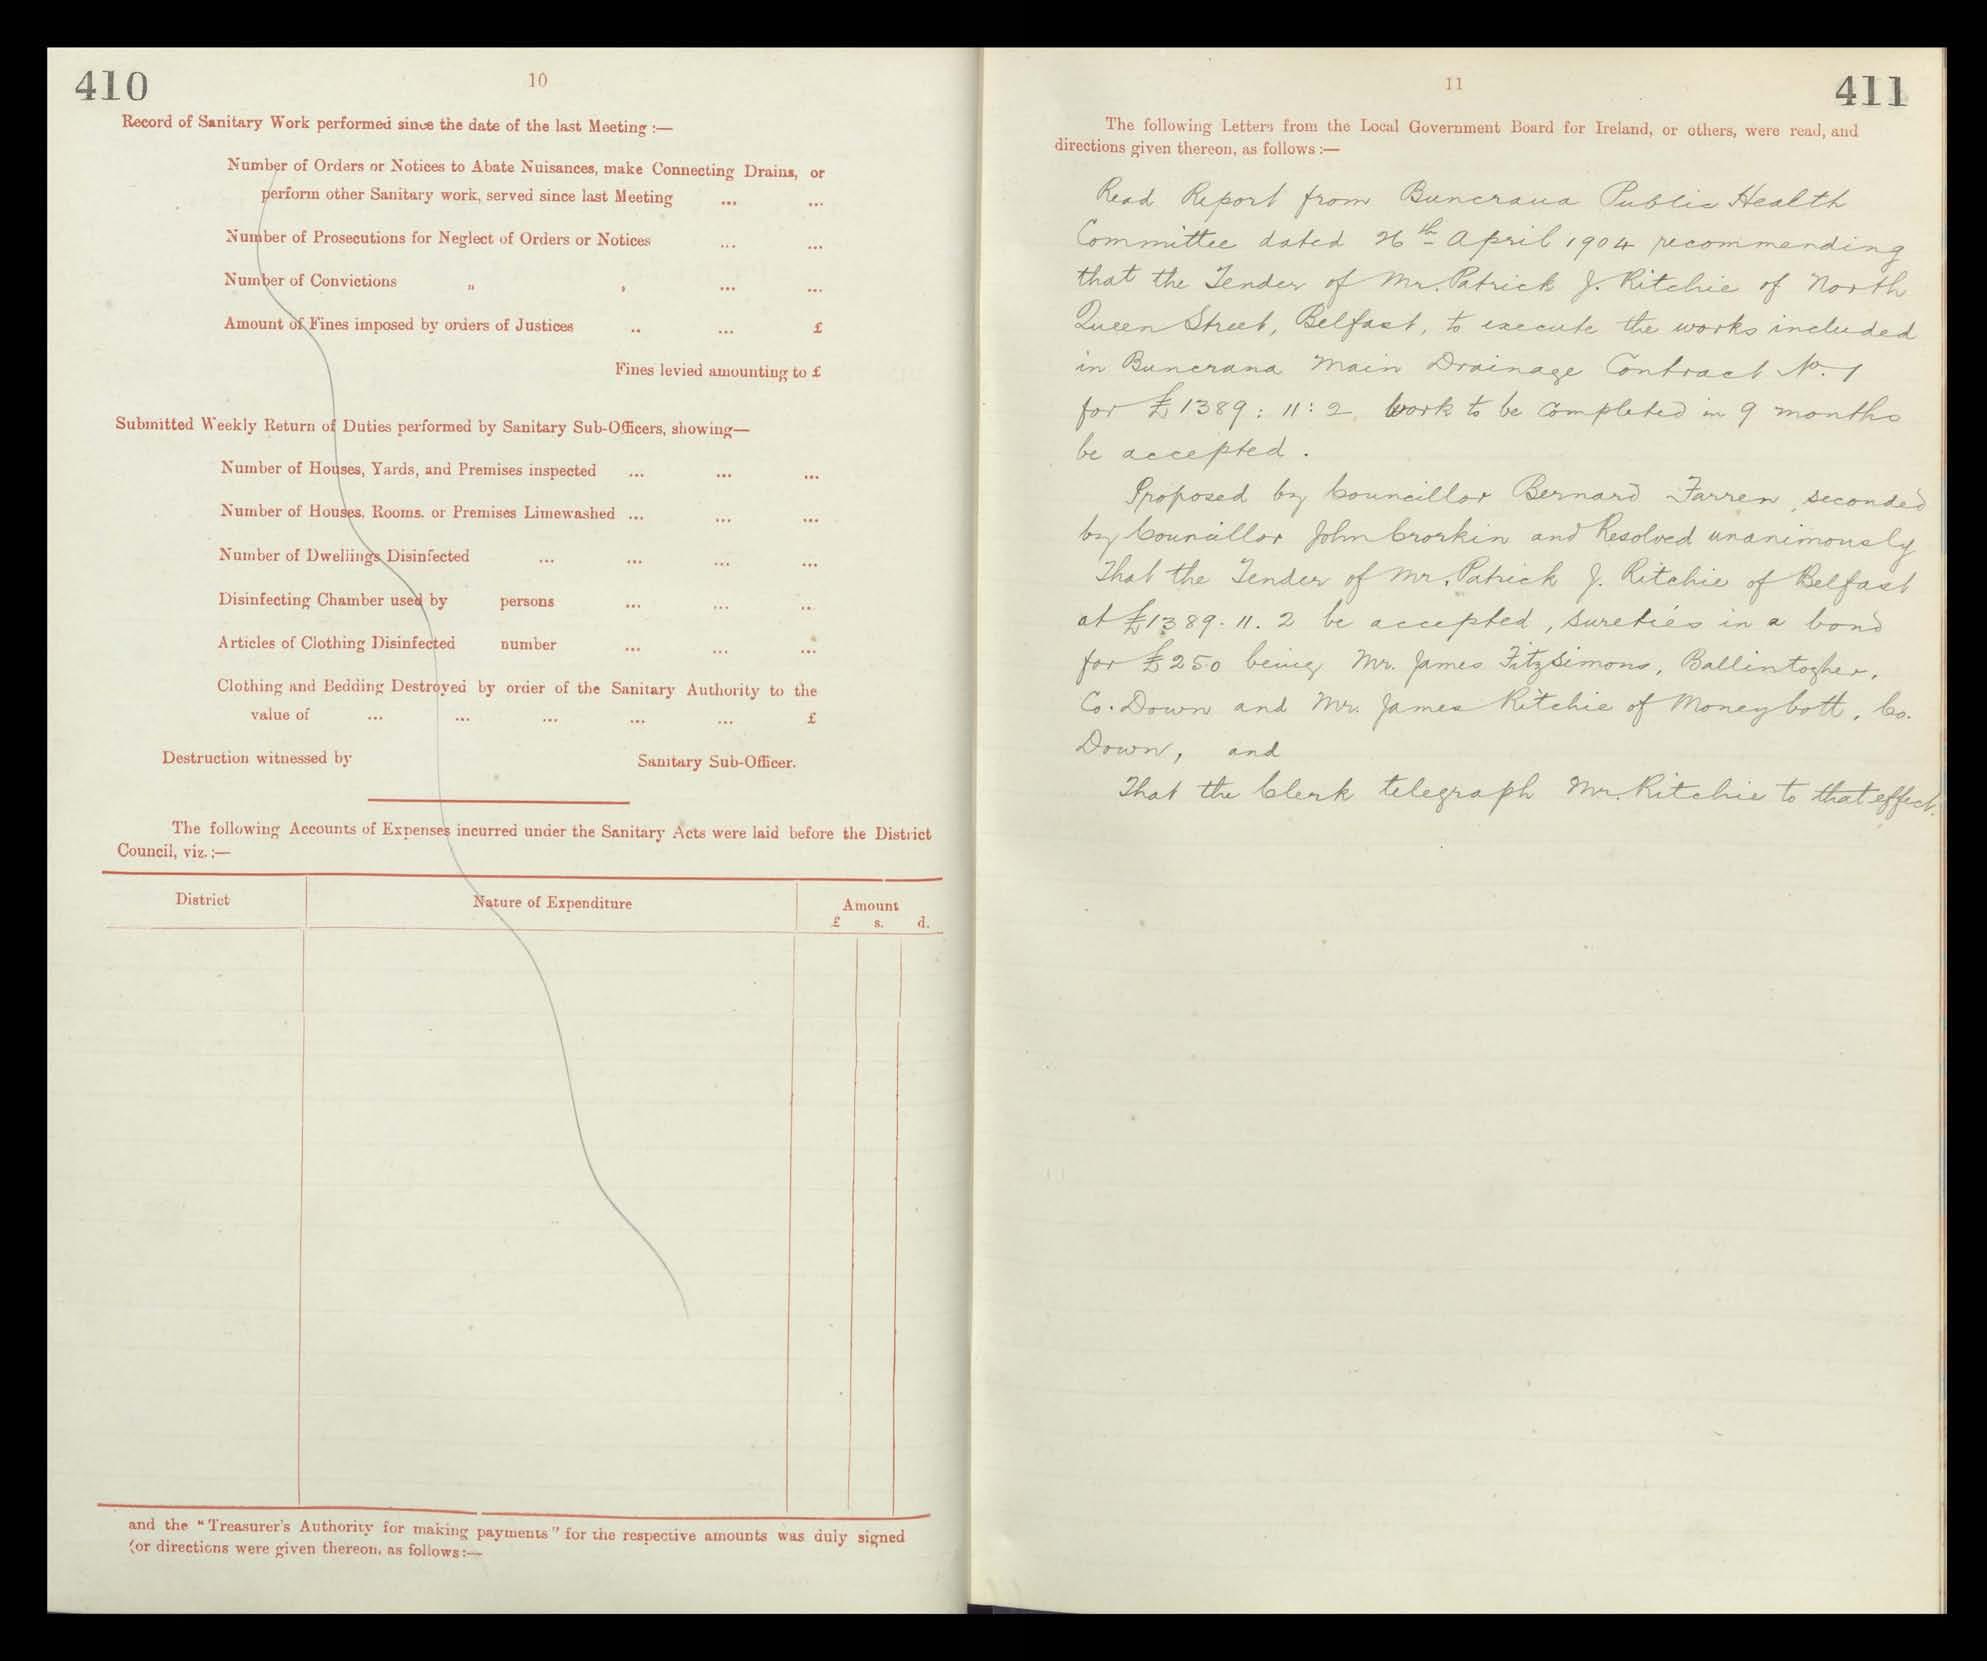 410
10
Record of Sanitary Work performed since the date of the last Meeting :—
Number of Orders or Notices to Abate Nuisances, make Connecting Drains, or
perform other Sanitary work, served since last Meeting ... ...
Number of Prosecutions for Neglect of Orders or Notices ... ...
Number of Convictions „ , ... ...
Amount of Fines imposed by orders of Justices .. ... £
Fines levied amounting to £
Submitted Weekly Return of Duties performed by Sanitary Sub-Officers, showing—
Number of Houses, Yards, and Premises inspected ... ... ...
Number of Houses, Rooms. or Premises Limewashed ... ... ...
Number of Dwellings Disinfected ... ... ... ...
Disinfecting Chamber used by persons ... ... ..
Articles of Clothing Disinfected number ... ... ...
Clothing and Bedding Destroyed by order of the Sanitary Authority to the
value of ... ... ... ... ... £
Destruction witnessed by Sanitary Sub-Officer.
The following Accounts of Expenses incurred under the Sanitary Acts were laid before the District
Council, viz. :—
District Nature of Expenditure Amount
£ s. d.
and the "Treasurer's Authority for making payments" for the respective amounts was duly signed
(or directions were given thereon, as follows :—
11
411
The following Letters from the Local Government Board for Ireland, or others, were read, and
directions given thereon, as follows :—
Read Report from Buncrana Public Health
Committee dated 26th April 1904 recommending
that the Tender of Mr. Patrick J. Ritchie of North
Queen Street, Belfast, to execute the works included
in Buncrana Main Drainage Contract No. 1
for £1389 : 11 : 2 Work to be completed in 9 months
be accepted.
Proposed by Councillor Bernard Farren, seconded
by Councillor John Crorkin and Resolved unanimously
That the Tender of Mr. Patrick J. Ritchie of Belfast
at £1389. 11. 2 be accepted, sureties in a bond
for £250 being Mr. James FitzSimons, Ballintogher,
Co. Down and Mr. James Ritchie of Moneybott, Co.
Down, and
That the Clerk telegraph Mr. Ritchie to that effect.